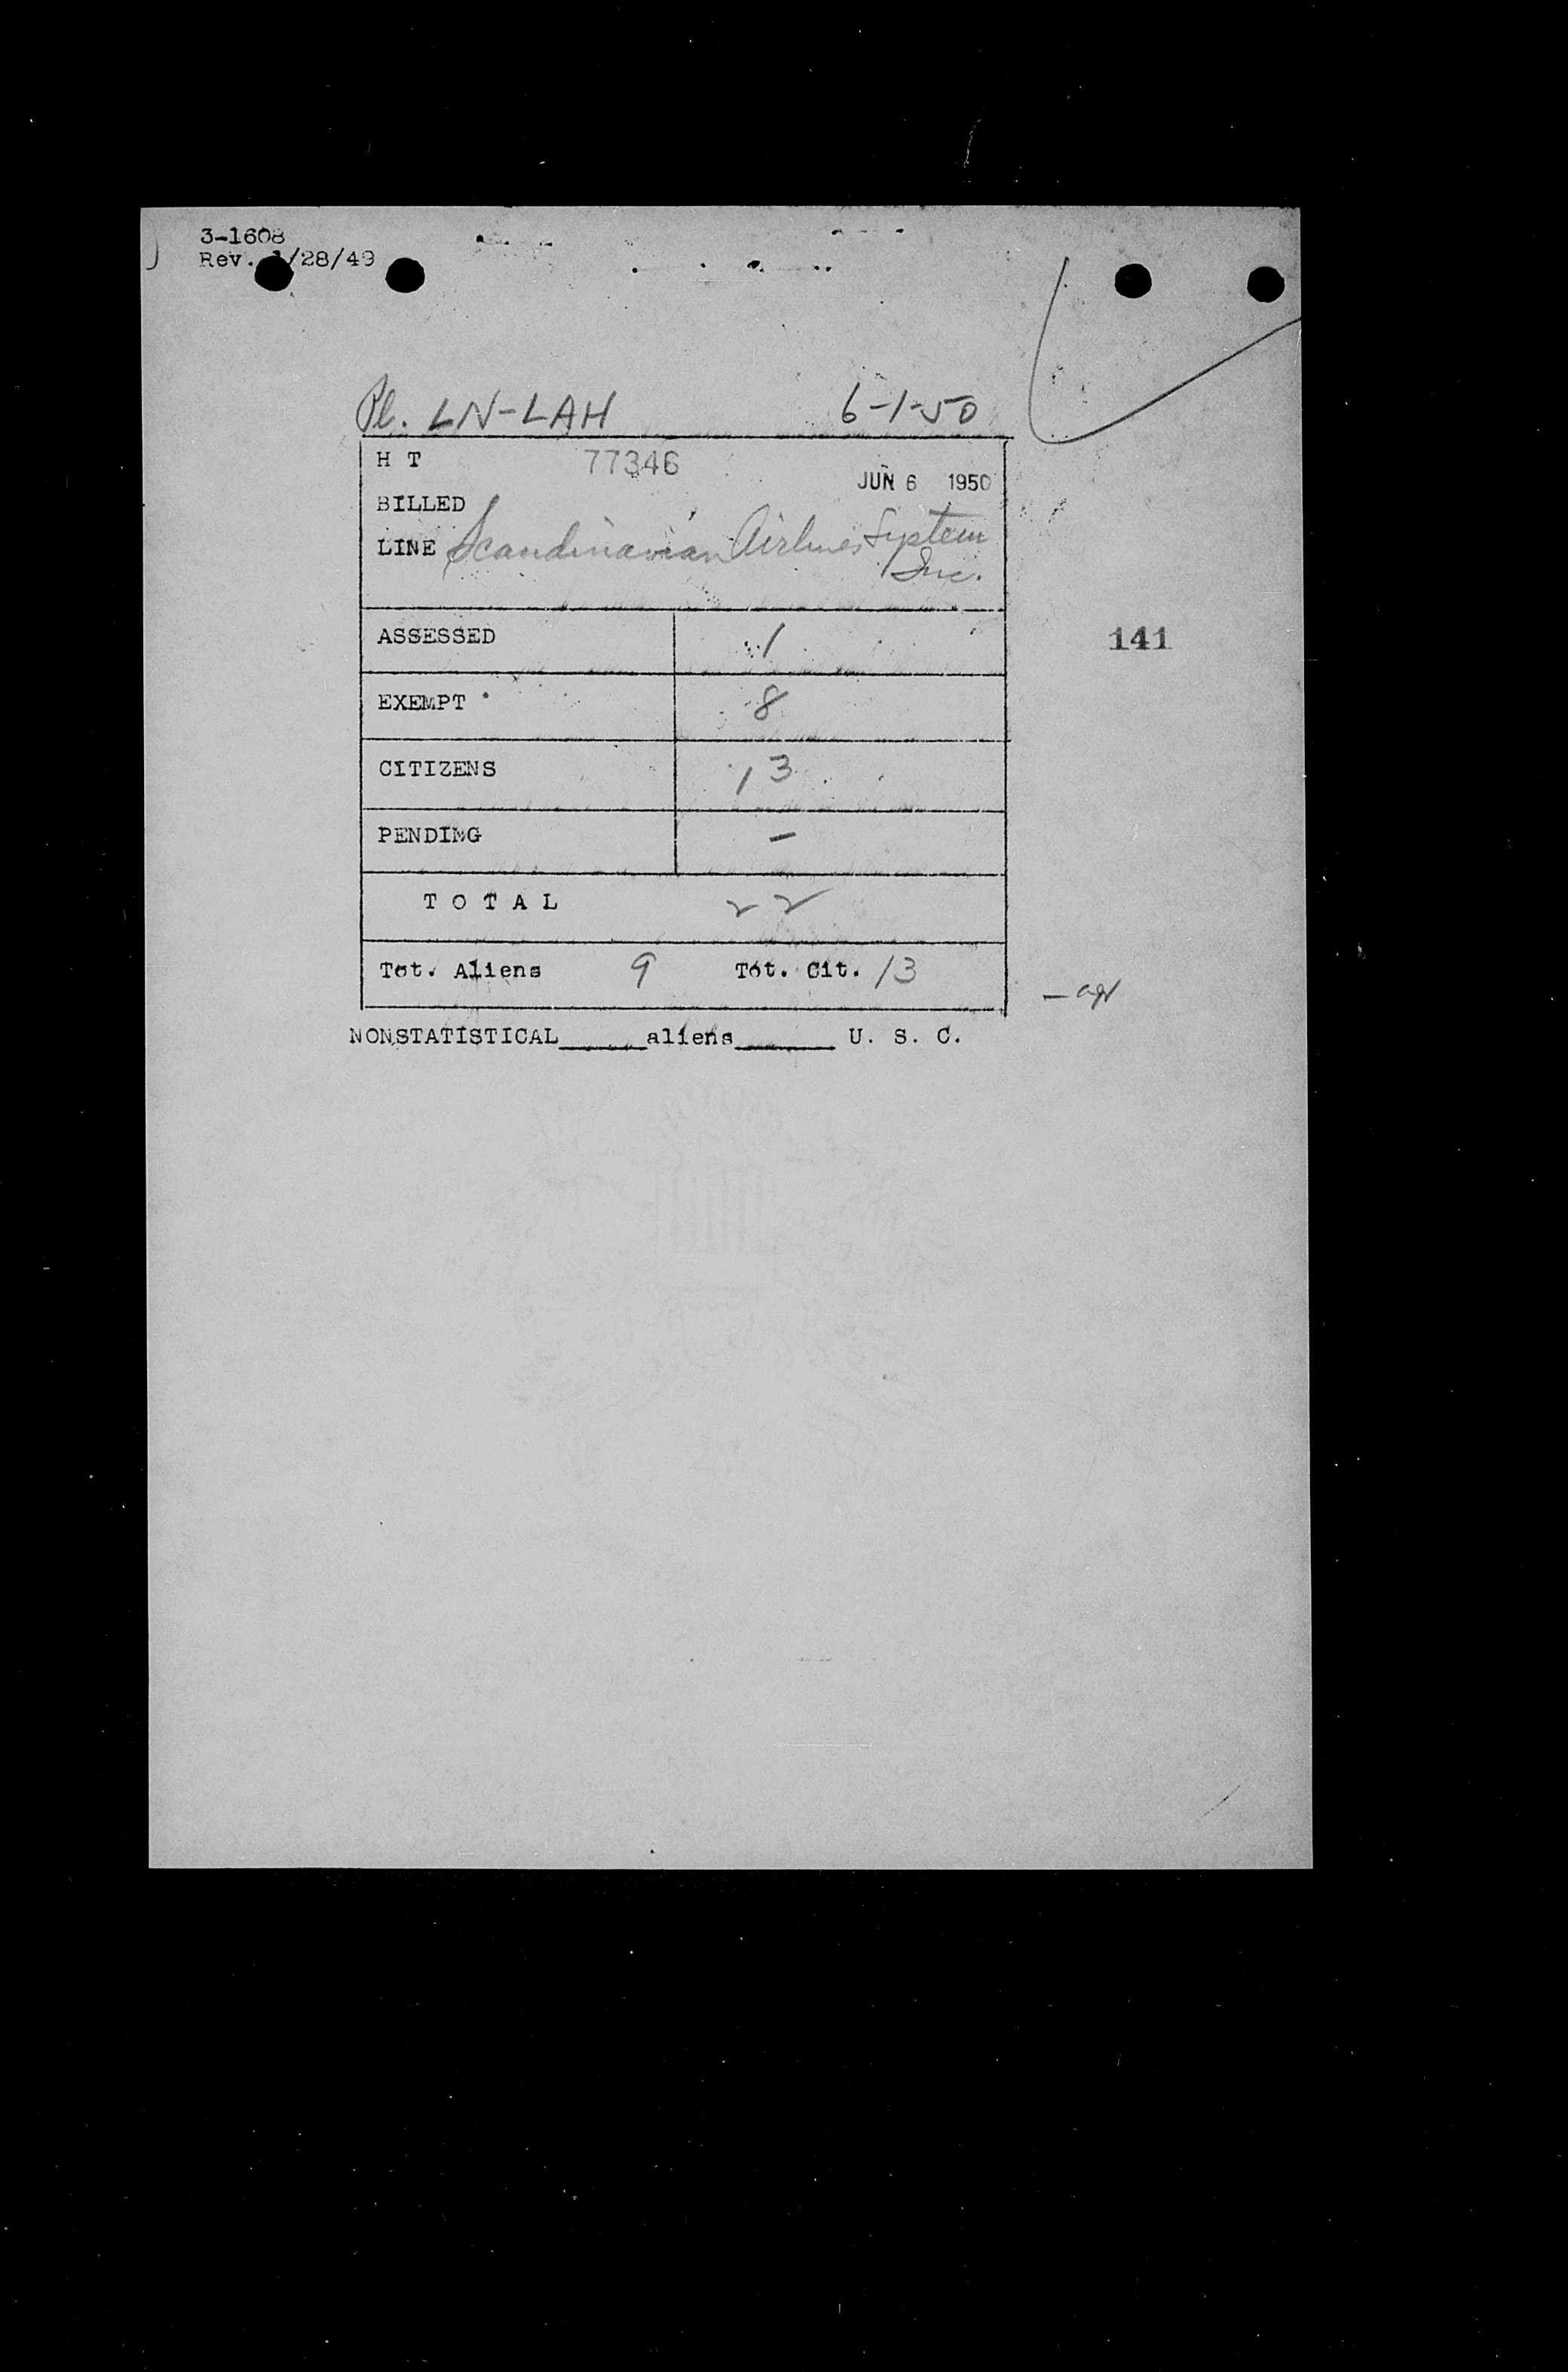 3-1608
Rev. 1/28/49
Pl. LN-LAH 6-1-50
H T 77346
JUN 6 1950
BILLED
LINE Scandinavian Airlines System
Inc.
ASSESSED 1
141
EXEMPT 8
CITIZENS 13
PENDING –
T O T A L 22
Tot. Aliens 9 Tot. Cit. 13
NONSTATISTICAL______aliens_______ U. S. C.